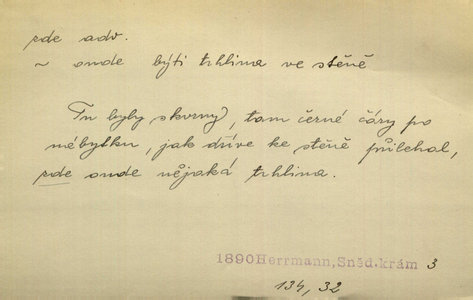 zde adv.
~ onde býti trhlina ve stěně
Tu byly skvrny, tam černé čáry po
nábytku, jak dříve ke stěně přiléhal,
zde onde nějaká trhlina.
1890 Herrmann, Sněd. krám 3
134, 32